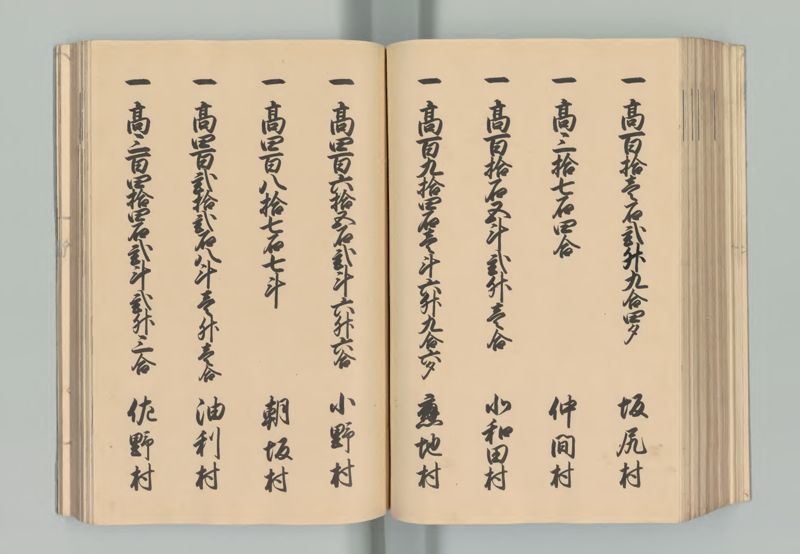 一 高百拾壱石弐升九合四夕 坂尻村
一 高三拾七石四合 仲間村
一 高百拾石五斗弐升壱合 小和田村
一 高百九拾四石壱斗六升九合六夕 應地村
一 高四百六拾五石弐斗六升六合 小野村
一 高四百八拾七石七斗 朝坂村
一 高四百弐拾弐石八斗壱升壱合 油利村
一 高三百四拾四石弐斗弐升三合 佐野村